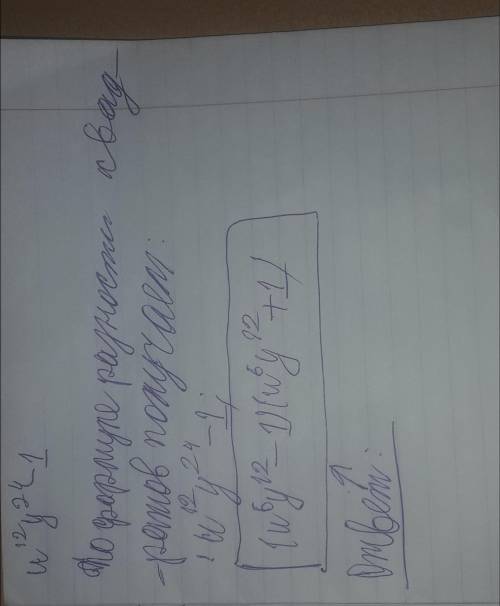 u¹²y²⁴-1
По формуле разности квад
-ратов получаем:
(u¹²y²⁴-1)
(u⁶y¹²-1)(u⁶y¹²+1)
Ответ: ↑